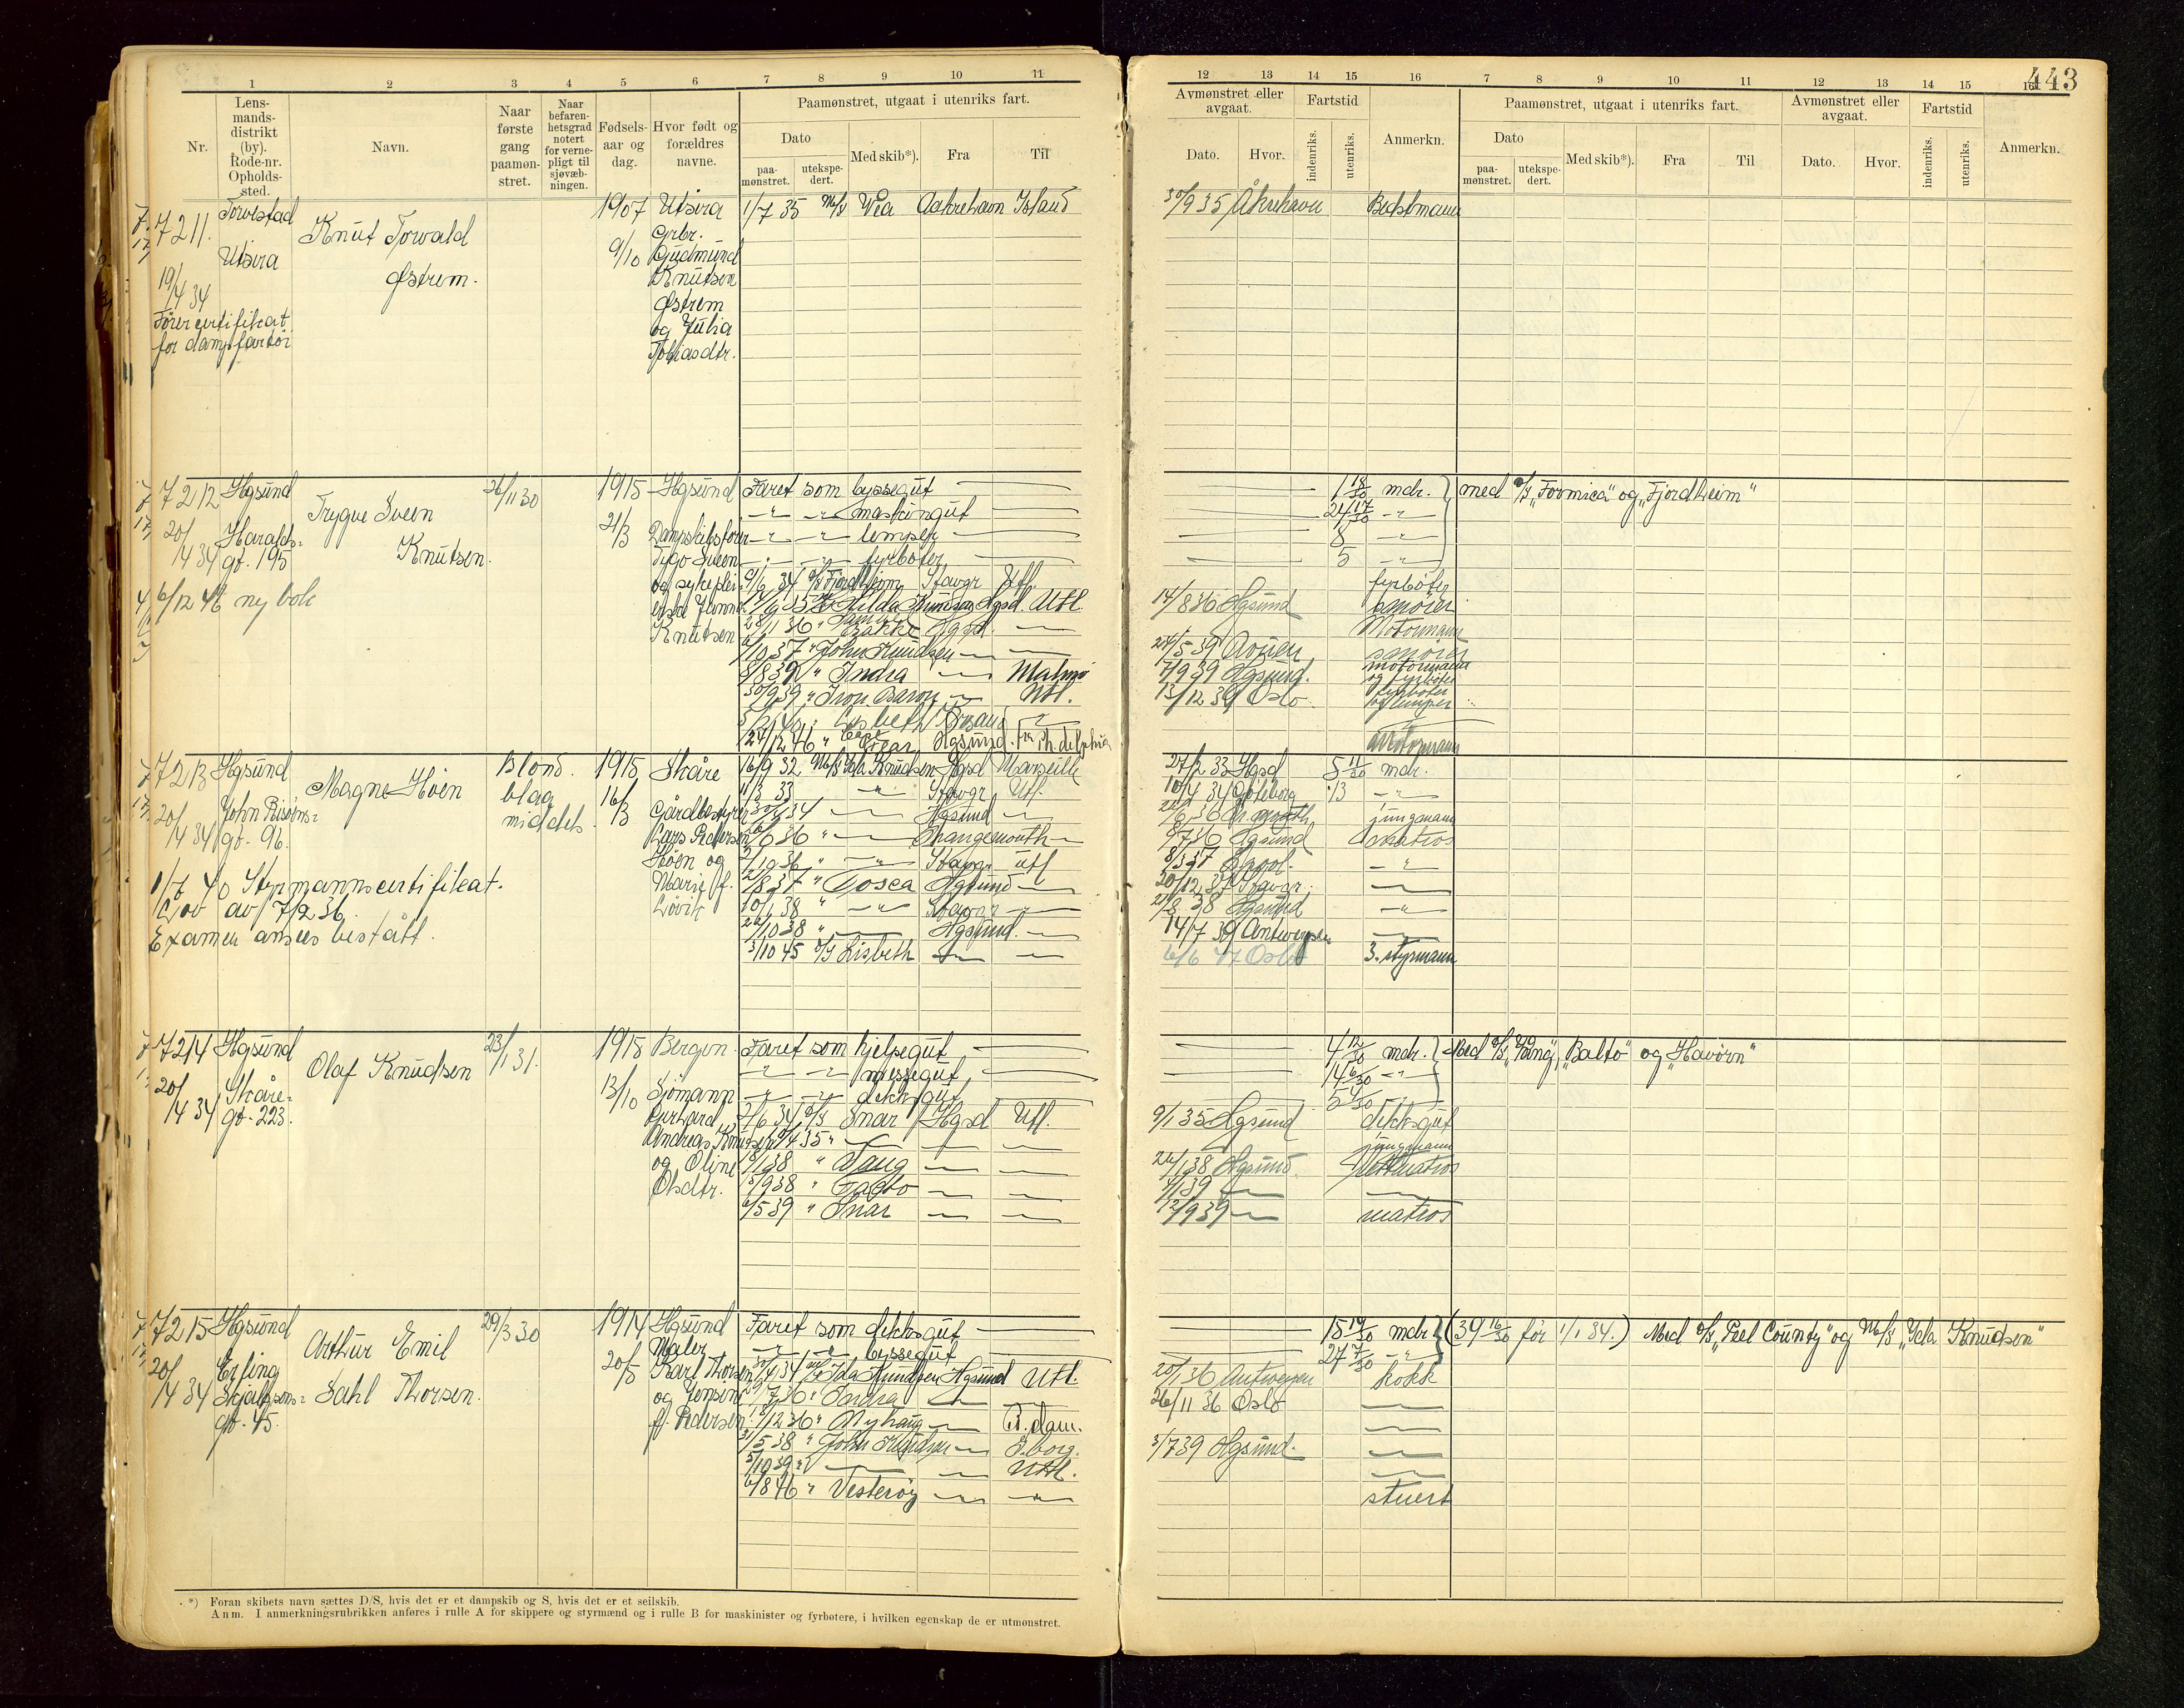 443
1 2 3 4 5 6 7 8 9 10 11
12 13 14 15 16 7 8 9 10 11 12 13 14 15 16
Nr.
Lens-
mands-
distrikt
(by).
Rode-nr.
Opholds-
sted.
Navn.
Naar
første
gang
paamøn-
stret.
Naar
befaren-
hetsgrad
notert
for verne-
pligt til
sjøvæb-
ningen.
Fødsels-
aar og
dag.
Hvor født og
forældres
navne.
Paamønstret, utgaat i utenriks fart.
Dato
paa-
mønstret.
utekspe-
dert.
Med skib*).
Fra
Til
Avmønstret eller
avgaat.
Dato.
Hvor.
Fartstid
indenriks.
utenriks.
Anmerkn.
Paamønstret, utgaat i utenriks fart.
Dato
paa-
mønstret.
utekspe-
dert.
Med skib*).
Fra
Til
Avmønstret eller
avgaat.
Dato.
Hvor.
Fartstid
indenriks.
utenriks.
Anmerkn.
7211. Torvestad
Utsira
19/4 34
Førercertifikat
for dampfartøi
Knut Torvald
Østrem.
1907
9/10
Utsira
Grbr.
Gudmund
Knutsen
Østrem
og Julia
Tobiasdtr.
1/7 35 M/S Wea Aakrehavn Island
30/9 35 Åkrehavn Bedstmann
7212 Hgsund
20/4 34 Haralds-
gt. 195
6/12 46 ny bok
Trygve Sveen
Knutsen.
26/11 30
1915
21/3
Hgsund
Dampskibsfører
Knutsen
Faret som byssegut
— " — — " — maskingut
— " — — " — lemper
— " — — " — fyrbøter
9/6 34 D/S Fjordheim Stavgr Utl.
Hilda Knudsen Hgsd. Utl.
John Knudsen
8/8 39 " Indra — " — Malmø
30/9 39 " Iron Baron — " — Utl.
Lisbeth
27/12 46 " Hgsund.
1 18/30 mdr.
24 17/30 — " —
8 — " —
5 — " —
med D/S „Formica" og „Fjordheim"
fyrbøter
14/8 36 Hgsund smører
Motormann
24/5 39 Rouen smører
7/9 39 Hgsund. motormann
og fyrbøter
13/12 39 Oslo fyrbøter
og lemper
Motormann
7213 Hgsund
20/4 34 John Risøens-
gt. 96.
1/7 40 Styrmannscertifikat.
Lov av 7/2 36.
Examen ansees bestått.
Magne Høen
Blond.
blaa
middels.
1915
16/3
Skåre
Gårdbestyrer
Lars Pedersen
Høen og
Marie f.
Løvik
16/9 32 M/S Ida Knudsen Hgsd Marseille
11/3 33 — " — Stavgr Utl.
30/4 34 — " — Hgsund
Grangemouth
2/10 36 " — " — Stavgr utl
2/8 37 " Tosca Hgsund
10/1 38 " — " — Stavgr
22/10 38 " Hgsund.
3/10 45 D/S Lisbeth
27/2 33 Hgsd 5 11/30 mdr.
10/4 34 Göteborg 13 — " —
jungmann
8/7 36 Hgsund matros
8/3 37 — " —
20/12 37 Stavgr.
21/8 38 Hgsund — " —
14/7 39 Antwerpen
6/6 47 Oslo 3. styrmann
7214 Hgsund
20/4 34 Skåre-
gt. 223.
Olaf Knudsen
23/1 31.
1915
13/10
Bergen.
Sjømann
Gerhard
Andreas Knudsen
og Oline
Olsdtr.
Faret som hjelpegut
— " — — " — messegut
— " — — " — dekksgut
2/6 34 D/S Snar Hgsd Utl.
4/4 35 "
8/1 38 " Vang
5/9 38 "
6/5 39 " Snar
4 12/30 mdr.
14 6/30 — " —
5 4/30 — " —
Med D/S „Vang", „Balto" og „Havørn"
9/1 35 Hgsund dekksgut
jungmann
24/1 38 Hgsund Lettmatros
4/1 39
12/9 39 matros
7215 Hgsund
20/4 34 Erling
Skjalgsons-
gt. 45.
Arthur Emil
Dahl Thorsen.
29/3 30
1914
20/5
Hgsund
Maler
Karl Thorsen
og Jensine
f. Pedersen
Faret som dekksgut
— " — — " — byssegut
30/4 34 M/S Ida Knudsen Hgsund Utl.
Indra
7/12 36 " Nyhaug R.dam.
31/5 38 " John Knudsen G.borg.
5/10 39 " Utl.
6/8 46 " Vesterøy
15 19/30 mdr.
27 7/30 — " —
(39 16/30 før 1/1 34.) Med D/S „Peel County" og M/S „Ida Knudsen"
20/1 36 Antwerpen kokk
26/11 36 Oslo
3/7 39 Hgsund.
stuert
*) Foran skibets navn sættes D/S, hvis det er et dampskib og S, hvis det er et seilskib.
Anm. I anmerkningsrubrikken anføres i rulle A for skippere og styrmænd og i rulle B for maskinister og fyrbøtere, i hvilken egenskap de er utmønstret.